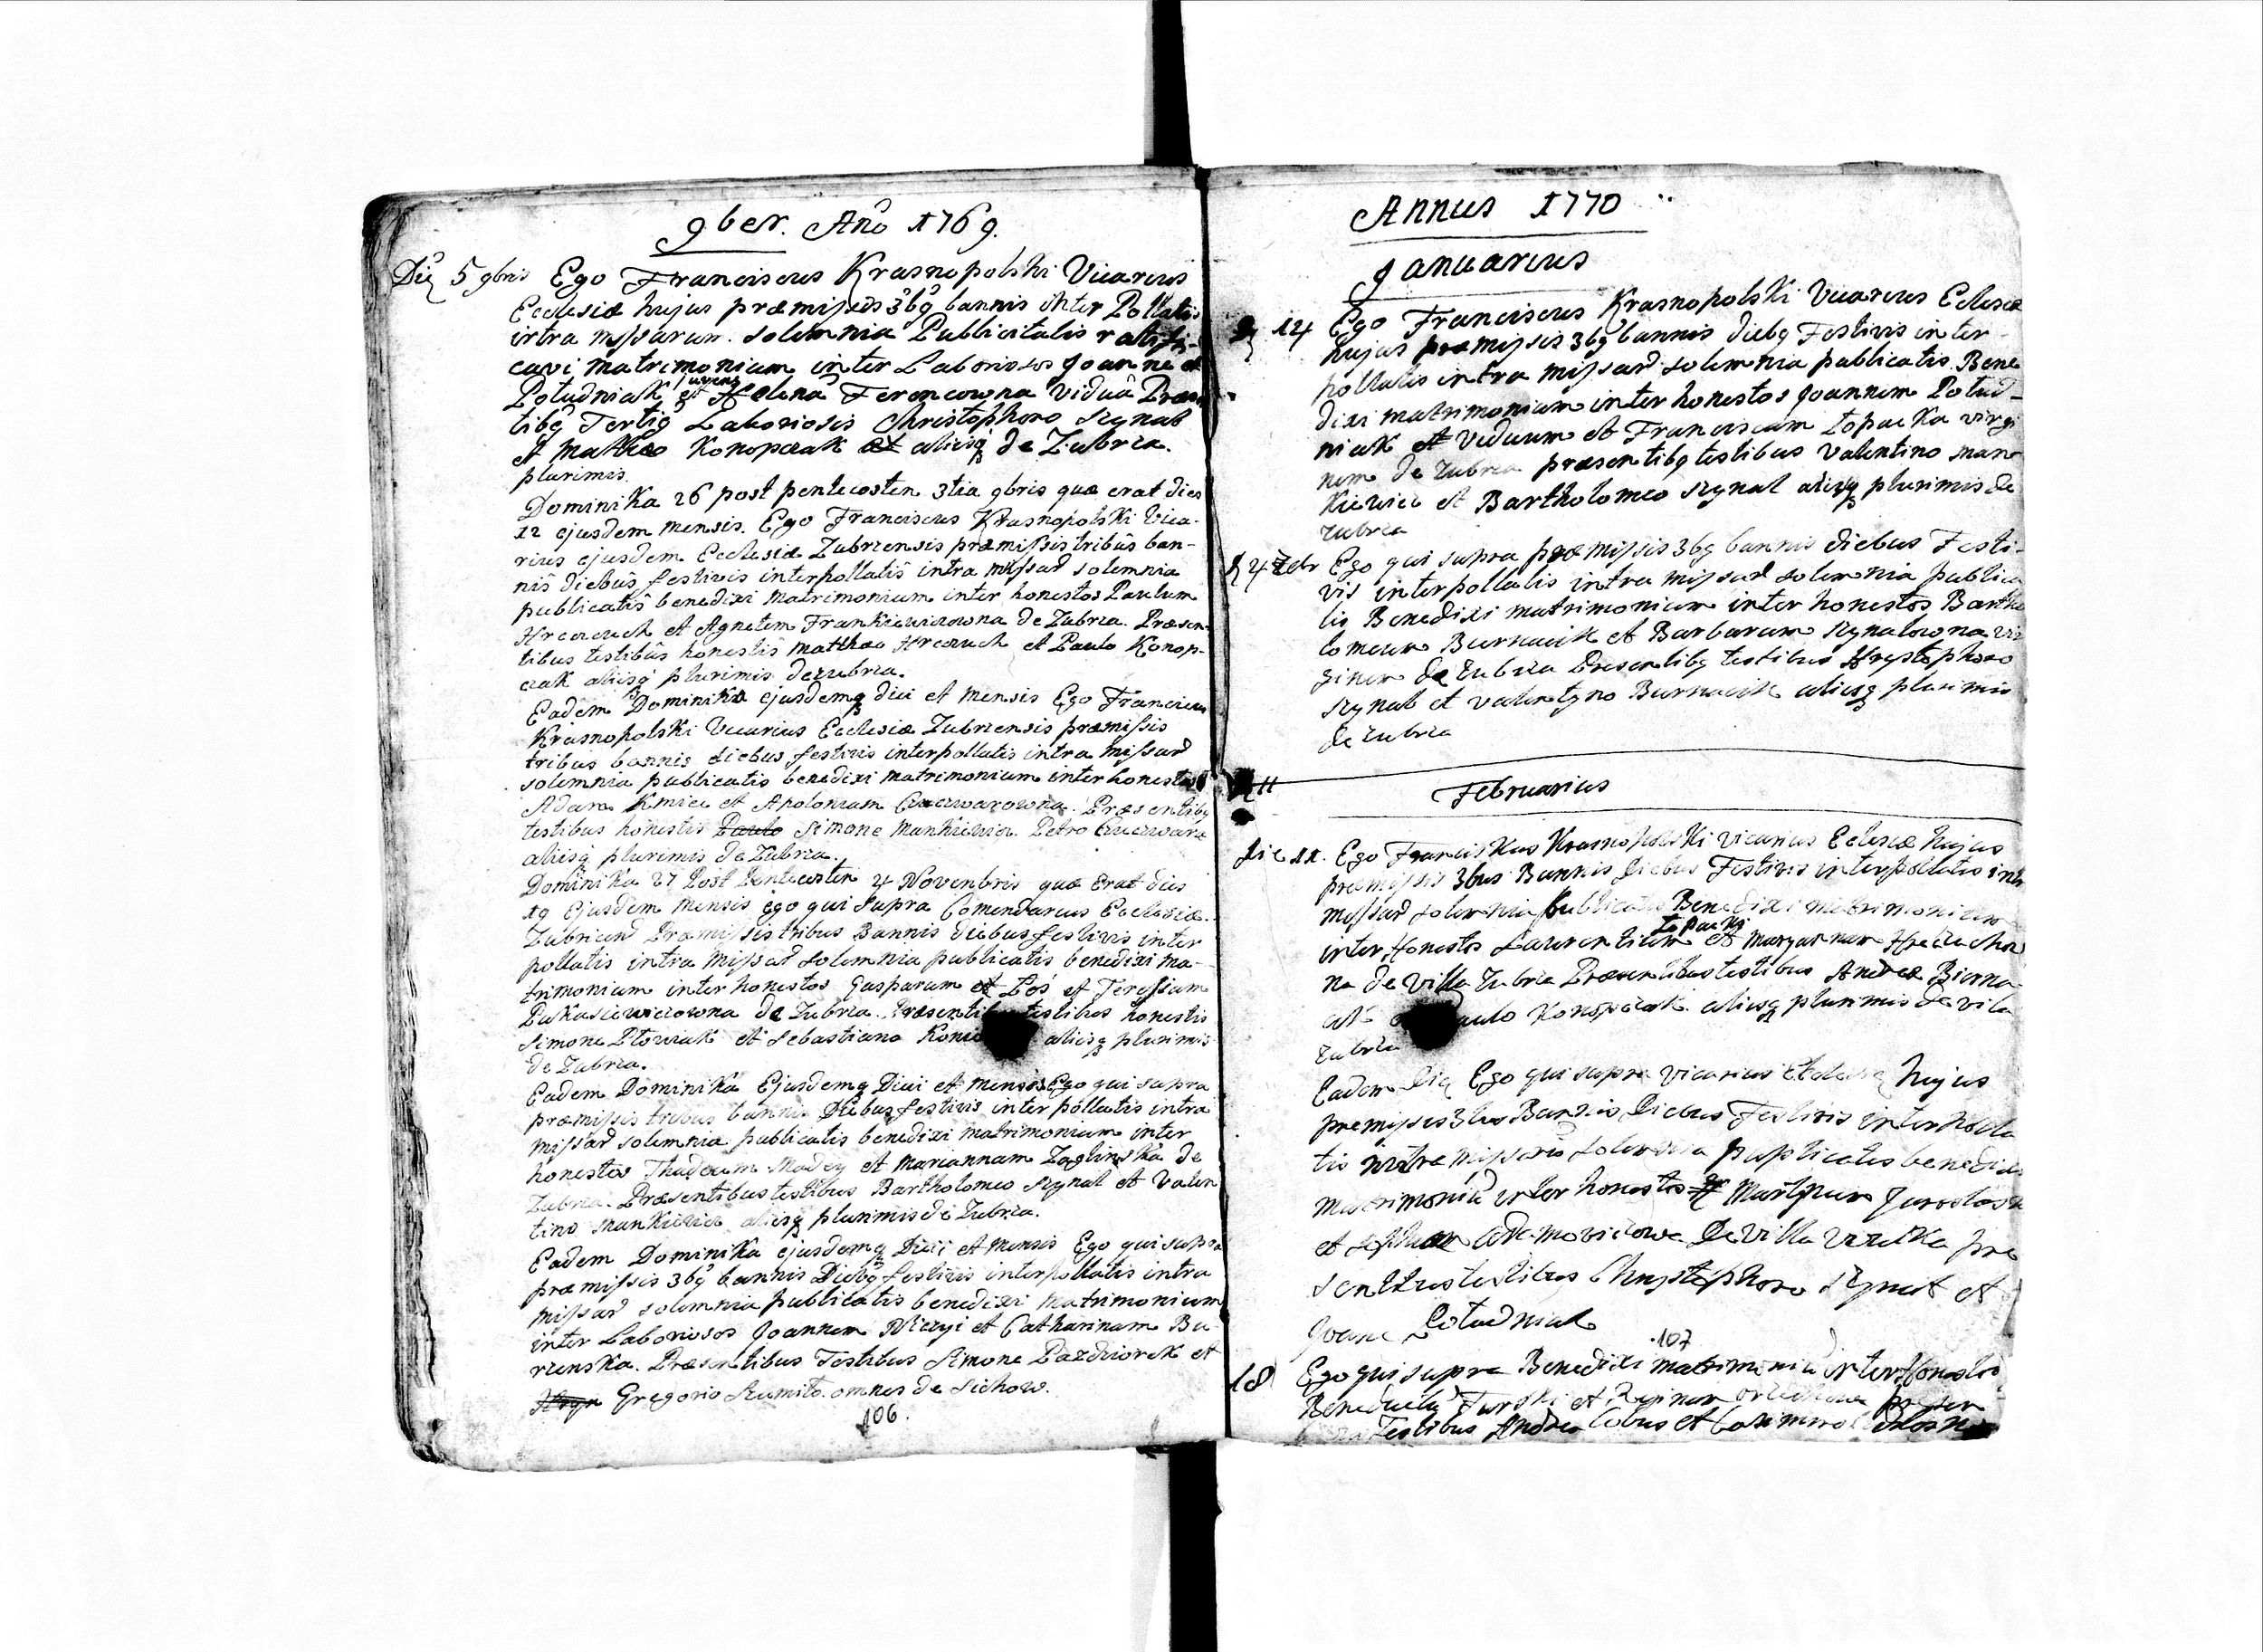 9ber. Año 1769.
Die 5 9bris Ego Franciscus Krasnopolski Vicarius
Ecclesiæ hujus præmissis 3bq bannis inter Pollatis
intra missarum solemnia Publicitatis ratifi-
cavi matrimonium inter Laboriosos Joanne et
Południak juvene et Helena Feroncowna Vidua Præsen
tibq Tertiq Laboriosis Christophoro Szynal
et Mathæo Konopczak et aliisq de Zubrza.
plurimis.
Dominika 26 post pentecosten 3tia 9bris quæ erat dies
12 ejusdem mensis. Ego Franciscus Krasnopolski Vica-
rius ejusdem Ecclesiæ Zubrzensis præmissis tribus ban-
nis diebus festivis interpollatis intra missar solemnia
publicatis benedixi Matrimonium inter honestos Paulum
Hreczuch et Agnetem Frankiewiczowna de Zubrza. Præsen-
tibus testibus honestis Matthæo Hreczuch et Paulo Konop-
czak aliisq plurimis de zubrza.
Eadem Dominika ejusdemq diei et mensis Ego Franciscus
Krasnopolski Vicarius Ecclesiæ Zubrzensis præmissis
tribus bannis diebus festivis interpollatis intra missar
solemnia publicatis benedixi matrimonium inter honestos
Adam Kmiec et Apoloniam Præsentibq
testibus honestis Paulo Simone Mankiewicz Petro
aliisq plurimis de Zubrza.
Dominika 27 Post Pentecosten 4 Novenbris quæ erat dies
19 Ejusdem mensis ego qui supra Comendarius Ecclesiæ
Præmissis tribus Bannis diebus festivis inter
pollatis intra Missar solemnia publicatis benedixi ma-
trimonium inter honestos Gasparum et Łoś et Teressiam
Łukasiewiczowna de Zubrza. Præsentibus testibus honestis
Simone et Sebastiano aliisq plurimis
de Zubrza.
Eadem Dominika Ejusdemq Diei et mensis Ego qui supra
præmissis tribus bannis Diebus festivis inter pollatis intra
missar solemnia publicatis benedixi matrimonium inter
honestos Thadeum Madey et Mariannam Zaglinska de
Zubrza. Præsentibus testibus Bartholomeo Szynal et Valen
tino Mankiewicz aliisq plurimis de Zubrza.
Eadem Dominika ejusdemq Diei et mensis Ego qui supra
præmissis 3bq bannis Diebq festivis interpollatis intra
missar solemnia publicatis benedixi matrimonium
inter Laboriosos Joannem et Catharinam Bu
rzenska. Præsentibus Testibus Simone Pazdziorek et
Gregorio omnes de Sichow.
106.
Annus 1770
Januarius
14 Ego Franciscus Krasnopolski Vicarius Eclesiæ
hujus præmissis 3bq bannis diebq Festivis inter
pollatis intra missar solemnia publicatis Bene
dixi matrimonium inter honestos Joannem Połud-
niak et viduum et Franciscam Łopacka virgi
nem de zubrza præsentibq testibus Valentino Man
kiewicz et Bartholomeo Szynal aliisq plurimis de
zubrza
Ego qui supra præmissis 3bq bannis diebus Festi-
vis interpollatis intra missar solemnia publica
tis Benedixi matrimonium inter honestos Bartho
lomeum Burnacik et Barbaram Szynalowna vir
ginem de zubrza Presentibq testibus Hrystophoro
Szynal et valentyno Burnacik aliisq plurimis
de zubrza
Februarius
die 11. Ego Franciskus Krasnopolski vicarius Eclesiæ hujus
præmissis 3bus Bannis Diebus Festivis interpollatis intr
missar solemnia publicatis Benedixi matrimonium
inter Honestos Laurentium Łopacki et Maryannam
na de villa zubrza Præsentibus testibus Andrea Bierna
cik Paulo Konopczak aliisq plurimis de vila
zubrza
Eadem Die Ego qui supra vicarius Ecclesiæ hujus
premissis 3bus Bannis Diebus Festivis interpolla
tis intra missaru solemnia puplicatis benedixi
matrimoniu inter honestos
et De villa pre
sentibus testibus Chrystophoro Szynal et
Joane Południak
107
18 Ego qui supra Benedixi matrimoniu inter Honestos
Benedictu Turski et Reginam
Testibus Andrea et Casimiro